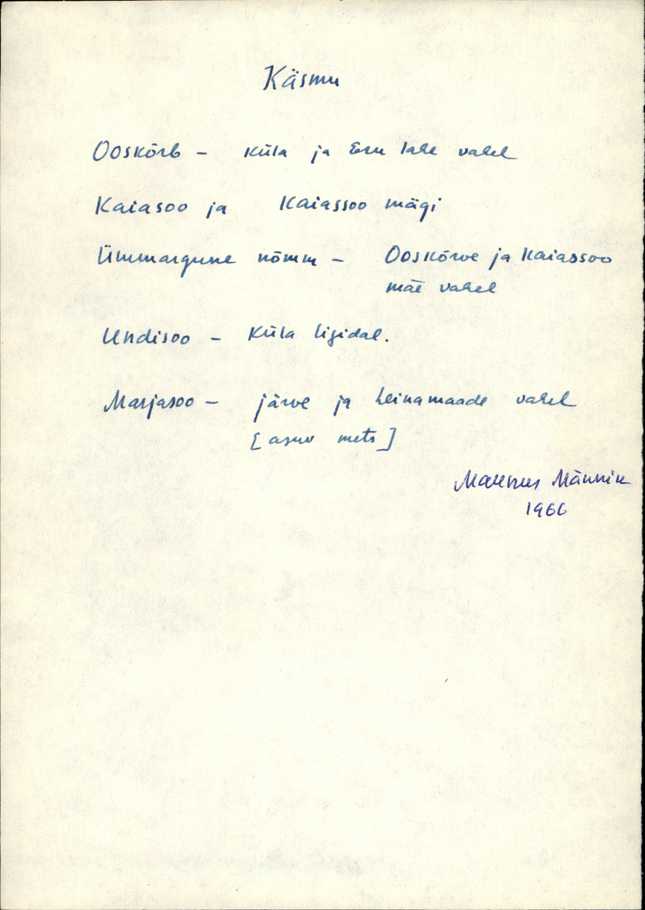 Käsmu
Ooskõrb - küla ja Eru lahe vahel
Kaiasoo ja Kaiassoo mägi
Ümmargune nõmm - Ooskõrve ja Kaiassoo
mäe vahel
Undisoo - küla ligidal.
Marjasoo - järve ja heinamaade vahel
[asuv mets]
Männik
1966